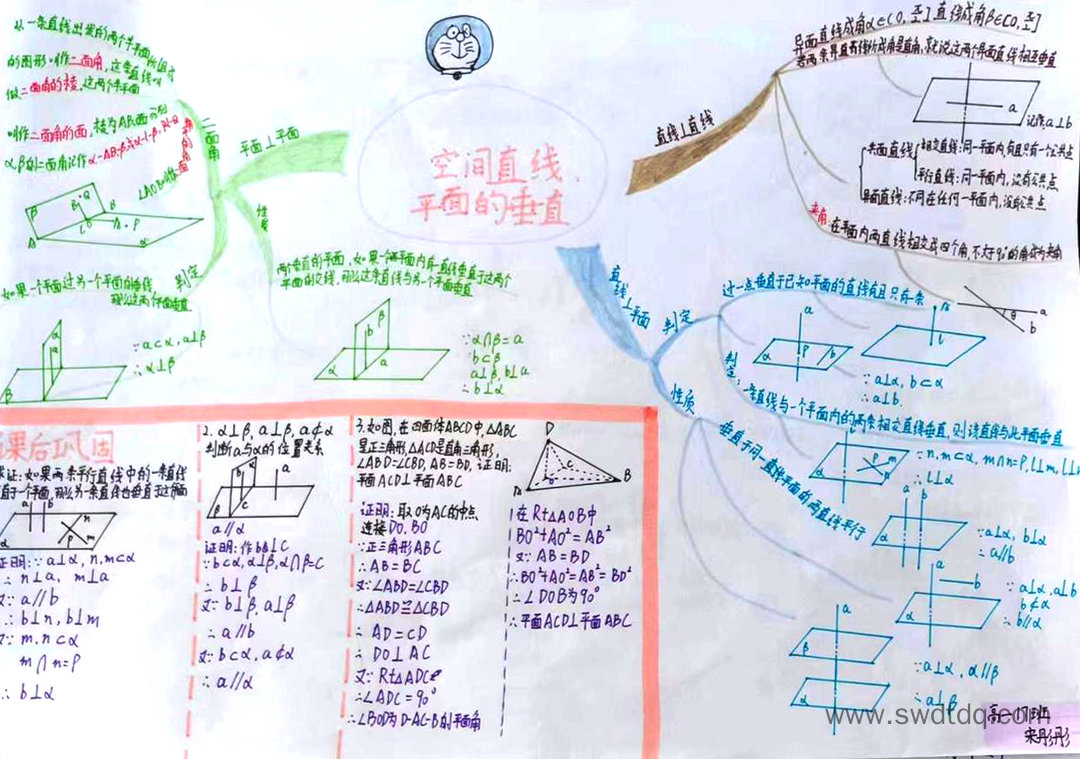 空间直线、
平面的垂直
平面⊥平面
二面角
从一条直线出发的两个半平面所组成
的图形叫作二面角,这条直线叫
做二面角的棱,这两个半平面
叫作二面角的面,棱为AB,面分别
α,β的二面角记作α-AB-β或α-l-β,P-l-Q
β
B
Q
A
P
α
性质
两个垂直的平面,如果一个平面内有一直线垂直于这两个
平面的交线,那么这条直线与另一个平面垂直
α
b
β
a
∵α∩β=a
b⊂β
a⊥β,b⊥a
∴b⊥α
判定
如果一个平面过另一个平面的垂线
那么这两个平面垂直
a
α
β
∵a⊂α,a⊥β
∴α⊥β
直线⊥直线
异面直线成角α∈(0,π/2]直线成角β∈[0,π/2]
若两条异面直线所成角是直角,就说这两个异面直线相互垂直
a
记作a⊥b
共面直线
相交直线:同一平面内,有且只有一个公共点
平行直线:同一平面内,没有公共点
异面直线:不同在任何一平面内,没有公共点
夹角:在平面内两直线相交成四个角,不大于90°的角成为夹角
θ
a
b
直线⊥平面
判定
过一点垂直于已知平面的直线有且只有一条
a
α
P
b
l
∵a⊥α,b⊂α
∴a⊥b
判定:一条直线与一个平面内的两条相交直线垂直,则该直线与此平面垂直
α
P
n
m
∵n,m⊂α,m∩n=P,l⊥m,l⊥n
∴l⊥α
性质
垂直于同一直线平面的两直线平行
a
b
α
∵a⊥α,b⊥α
∴a∥b
a
b
α
∵a⊥α,a⊥b
b⊄α
∴b∥α
a
β
α
∵a⊥α,α∥β
∴a⊥β
课后巩固
求证:如果两条平行直线中的一条直线
垂直于一个平面,那么另一条直线也垂直于这个平面
a
b
n
α
P
m
证明:∵a⊥α,n,m⊂α
∴n⊥a,m⊥a
又∵a∥b
∴b⊥n,b⊥m
又∵m,n⊂α
m∩n=P
∴b⊥α
2.α⊥β,a⊥β,a⊄α
判断a与α的位置关系
α
b
a
β
c
a∥α
证明:作b⊥C
∵b⊂α,α⊥β,α∩β=C
∴b⊥β
又∵b⊥β,a⊥β
∴a∥b
又∵b⊂α,a⊄α
∴a∥α
3.如图,在四面体ABCD中,△ABC
是正三角形,△ACD是直角三角形,
∠ABD=∠CBD,AB=BD,证明:
平面ACD⊥平面ABC
D
C
B
A
O
证明:取O为AC的中点
连接DO,BO
∵正三角形ABC
∴AB=BC
又∵∠ABD=∠CBD
∴△ABD≌△CBD
∴AD=CD
∴DO⊥AC
又∵Rt△ADC
∴∠ADC=90°
∴∠BOD为D-AC-B的平面角
在Rt△AOB中
BO²+AO²=AB²
又∵AB=BD
∴BO²+AO²=AB²=BD²
∴∠DOB为90°
∴平面ACD⊥平面ABC
www.swdtdq.com